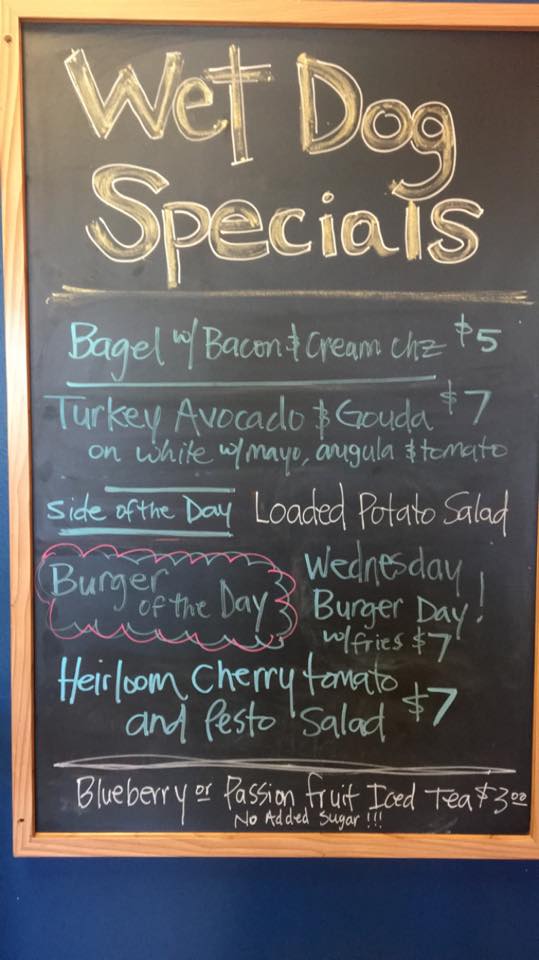 Wet Dog
Specials
Bagel w/ Bacon & Cream chz $5
Turkey Avocado & Gouda $7
on white w/mayo, arugula & tomato
Side of the Day Loaded Potato Salad
Burger
of the Day
Wednesday
Burger Day!
w/fries $7
Heirloom Cherry tomato
and Pesto Salad $7
Blueberry or Passion fruit Iced Tea $3.00
No Added Sugar!!!